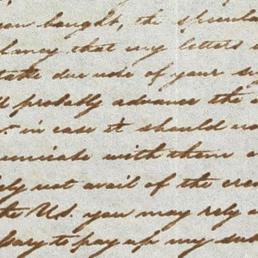 you bought, the specula
that my letters
take due note of your
probably advance the
in case it should
municate with them
ly not avail of the cre
the US. you may rely
to pay up my sub